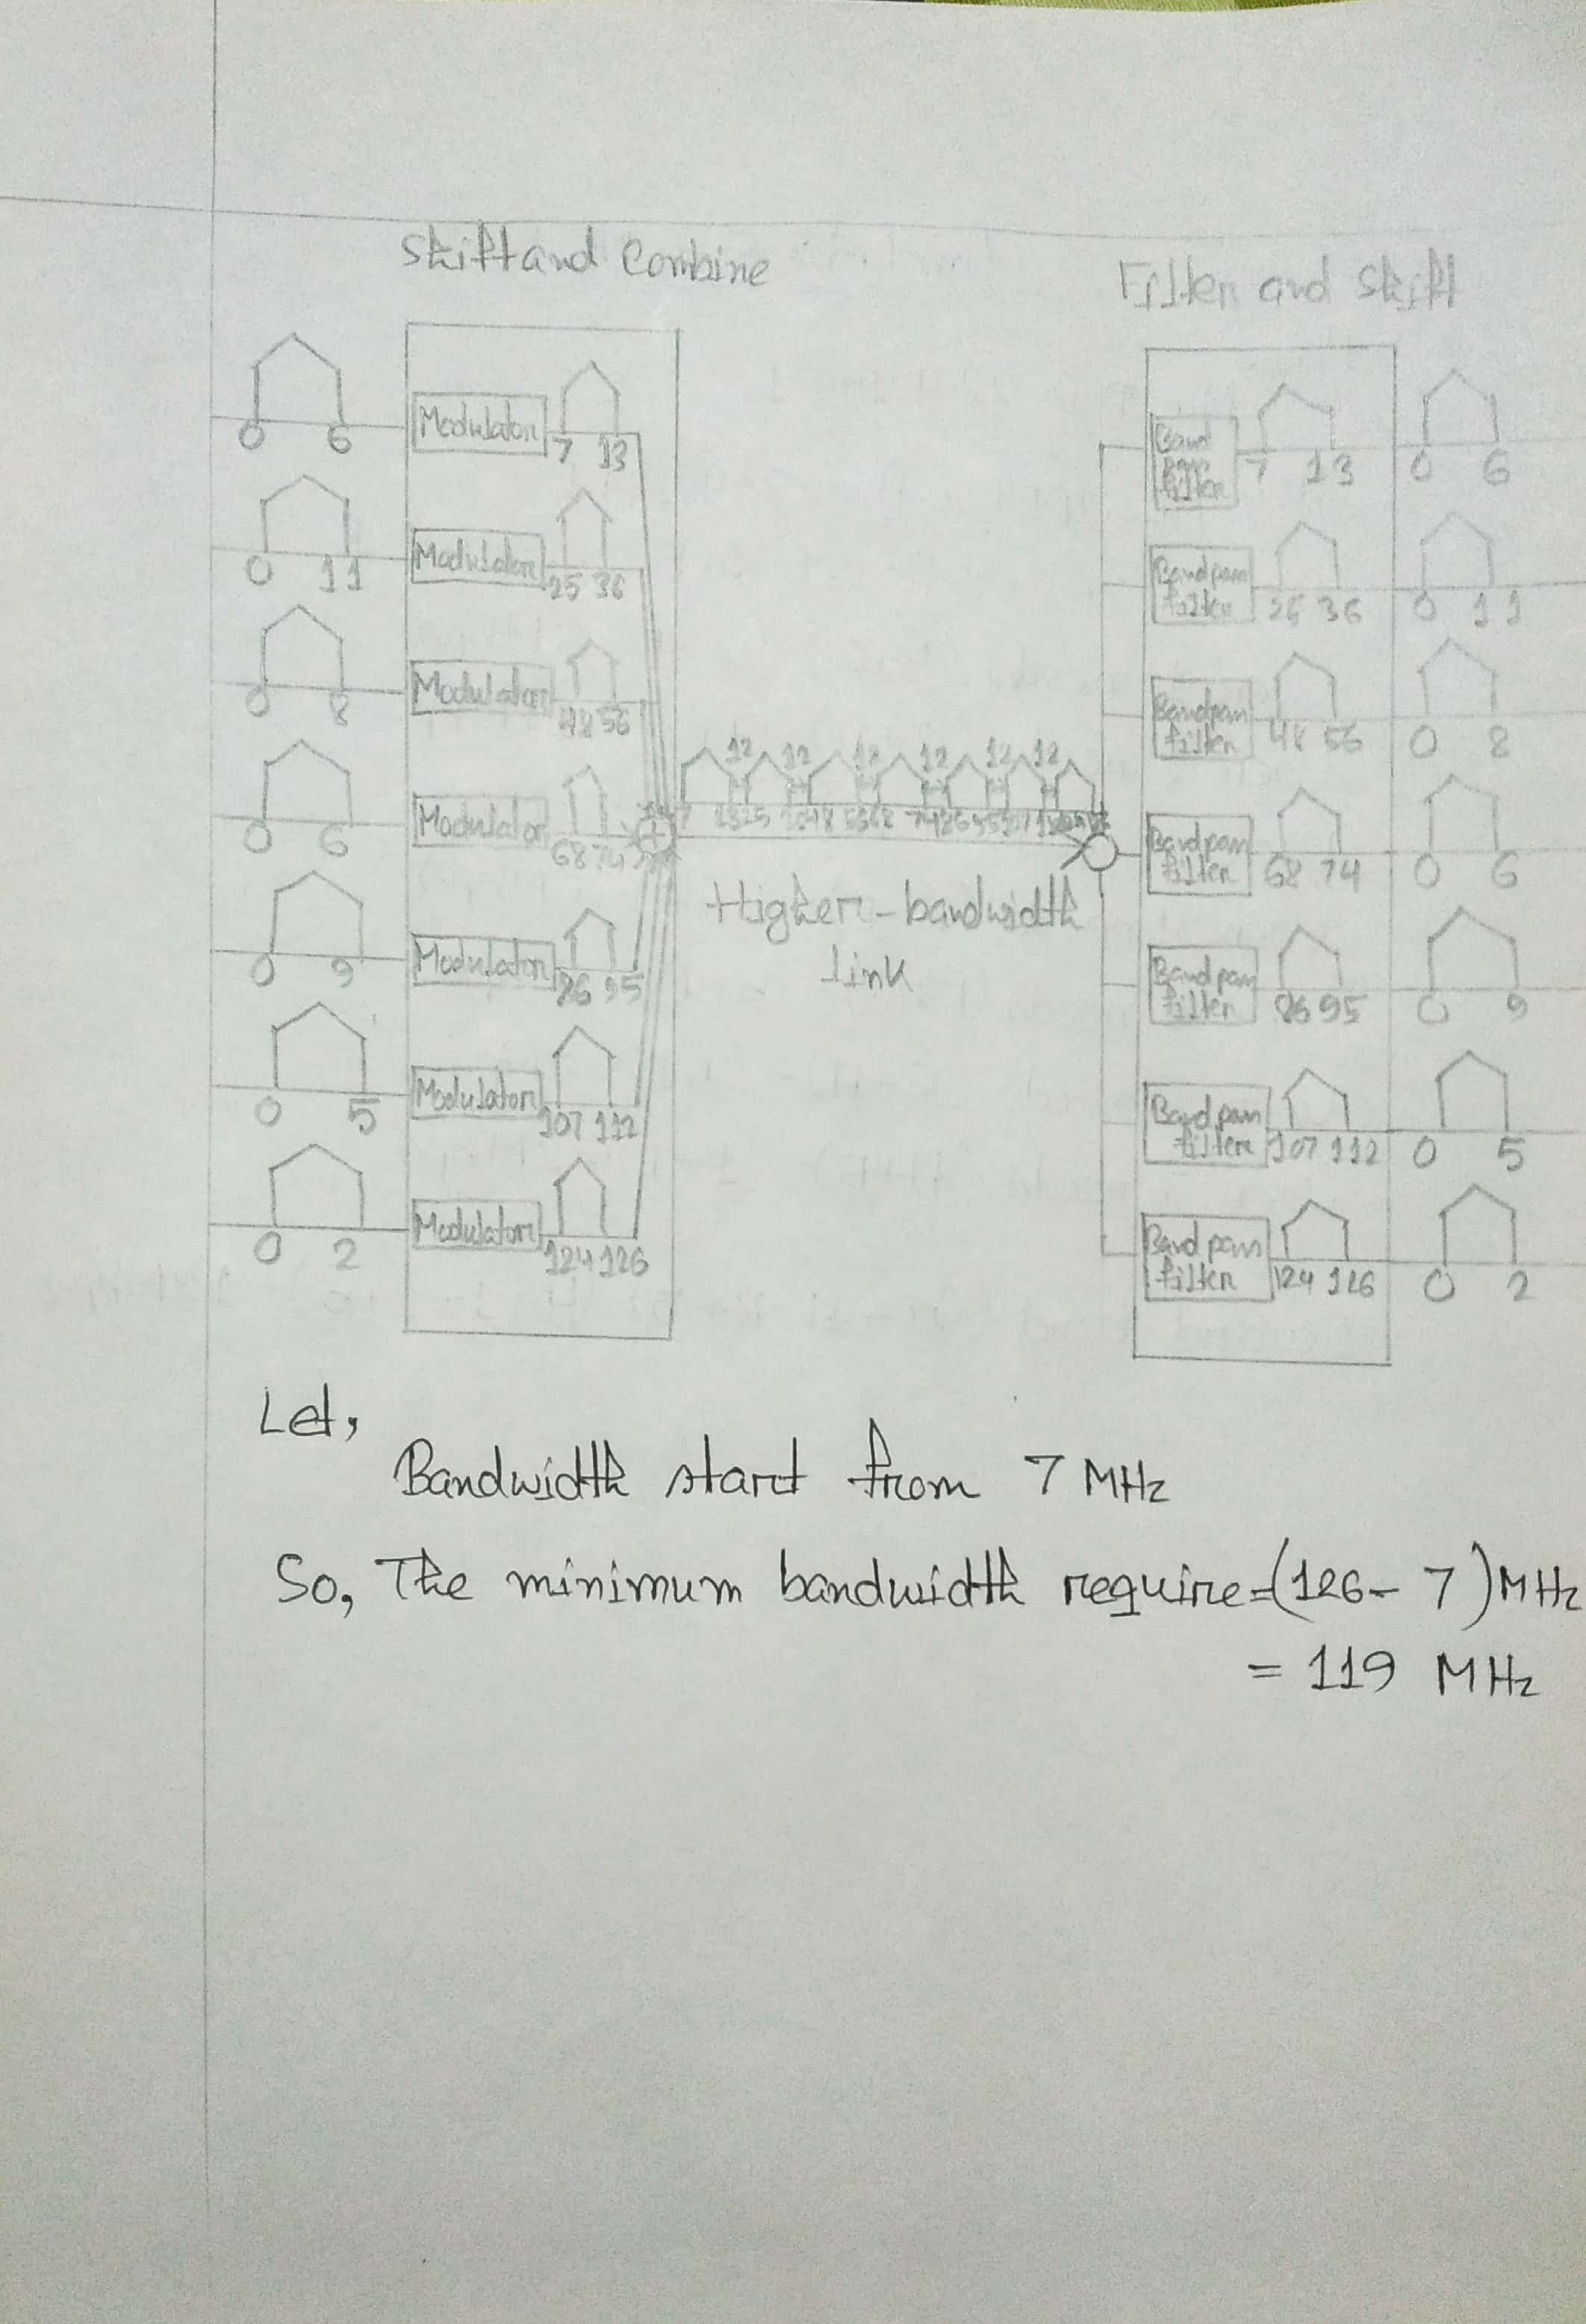 Shift and Combine
Filter and Shift
0 6 Modulator 7 13
0 11 Modulator 25 36
0 8 Modulator 48 56
0 6 Modulator 68 74
0 9 Modulator 86 95
0 5 Modulator 107 112
0 2 Modulator 124 126
12 12 12 12 12 12
Higher-bandwidth
Link
Band
pass
filter 7 13 0 6
Bandpass
filter 25 36 0 11
Bandpass
filter 48 56 0 8
Bandpass
filter 68 74 0 6
Bandpass
filter 86 95 0 9
Bandpass
filter 107 112 0 5
Bandpass
filter 124 126 0 2
Let,
Bandwidth start from 7 MHz
So, The minimum bandwidth require=(126-7)MHz
= 119 MHz